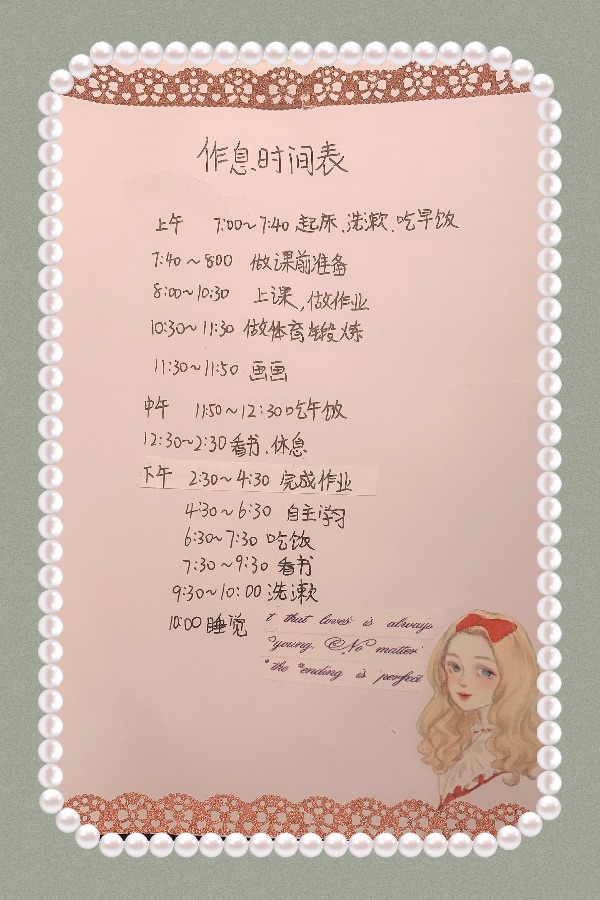 作息时间表
上午 7:00~7:40 起床、洗漱、吃早饭
7:40~8:00 做课前准备
8:00~10:30 上课,做作业
10:30~11:30 做体育锻炼
11:30~11:50 画画
中午 11:50~12:30吃午饭
12:30~2:30看书、休息
下午 2:30~4:30 完成作业
4:30~6:30 自主学习
6:30~7:30 吃饭
7:30~9:30 看书
9:30~10:00 洗漱
10:00 睡觉
t that loves is always
young. No matter
the ending is perfect